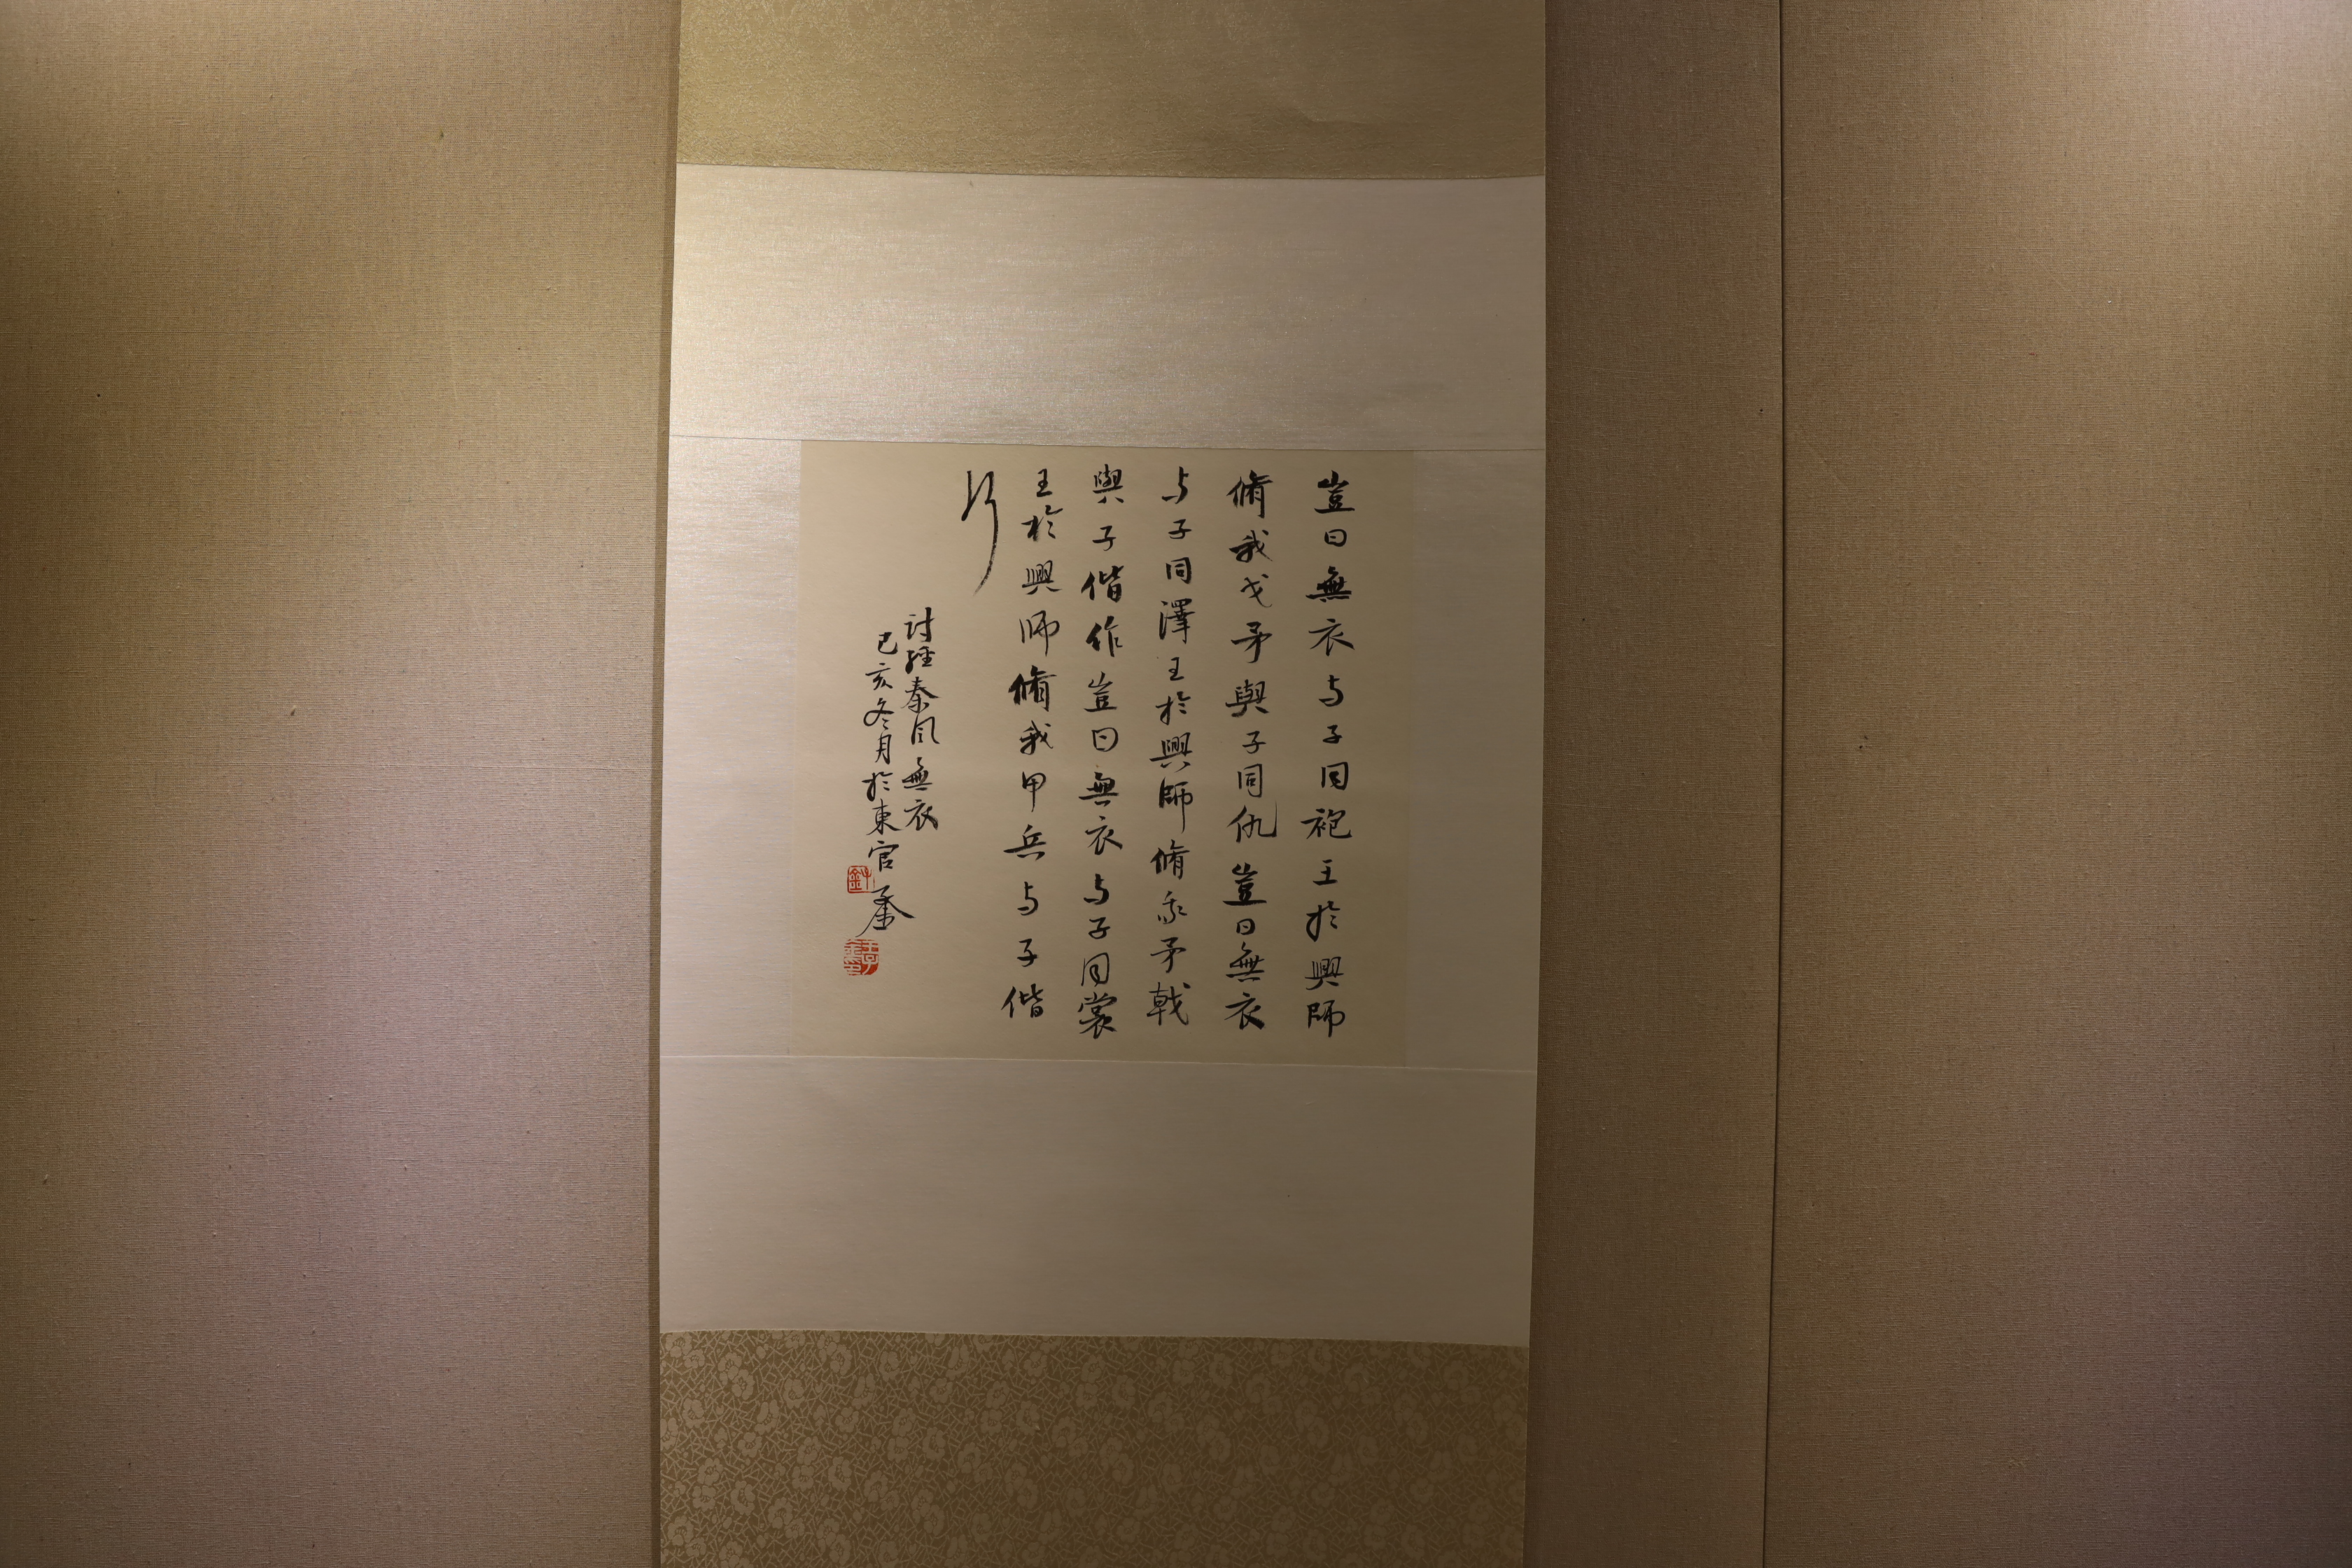 豈曰無衣与子同袍王於興師
脩我戈矛與子同仇豈曰無衣
与子同澤王於興師脩我矛戟
與子偕作豈曰無衣与子同裳
王於興師脩我甲兵与子偕
行
討經秦风無衣
己亥冬月於東官